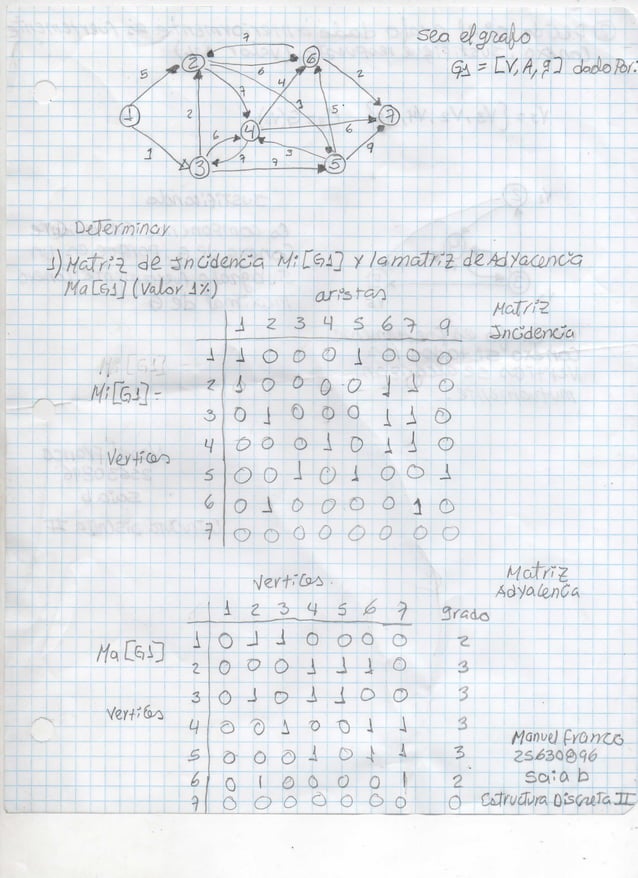 sea el grafo
G1 = [V, A, g] dado Por:
7
2 6 6
5 7 4 2
1 2 1 5 7
4 6
6
1 7 3 9
3 7 5
Determinar
1) Matriz de Incidencia Mi[G1] y la matriz de Adyacencia
Ma[G1] (Valor 1%)
aristas
Matriz
Incidencia
1 2 3 4 5 6 7 9
1 1 0 0 0 1 0 0 0
Mi[G1] =
2 1 0 0 0 0 1 1 0
3 0 1 0 0 0 1 1 0
4 0 0 0 1 0 1 1 0
Vertices
5 0 0 1 0 1 0 0 1
6 0 1 0 0 0 0 1 0
7 0 0 0 0 0 0 0 0
Vertices.
Matriz
Adyacencia
1 2 3 4 5 6 7 grado
1 0 1 1 0 0 0 0 2
Ma[G1]
2 0 0 0 1 1 1 0 3
3 0 1 0 1 1 0 0 3
Vertices
4 0 0 1 0 0 1 1 3
5 0 0 0 1 0 1 1 3
6 0 1 0 0 0 0 1 2
7 0 0 0 0 0 0 0 0
Manuel Franco
25630896
saia b
Estructura Discreta II